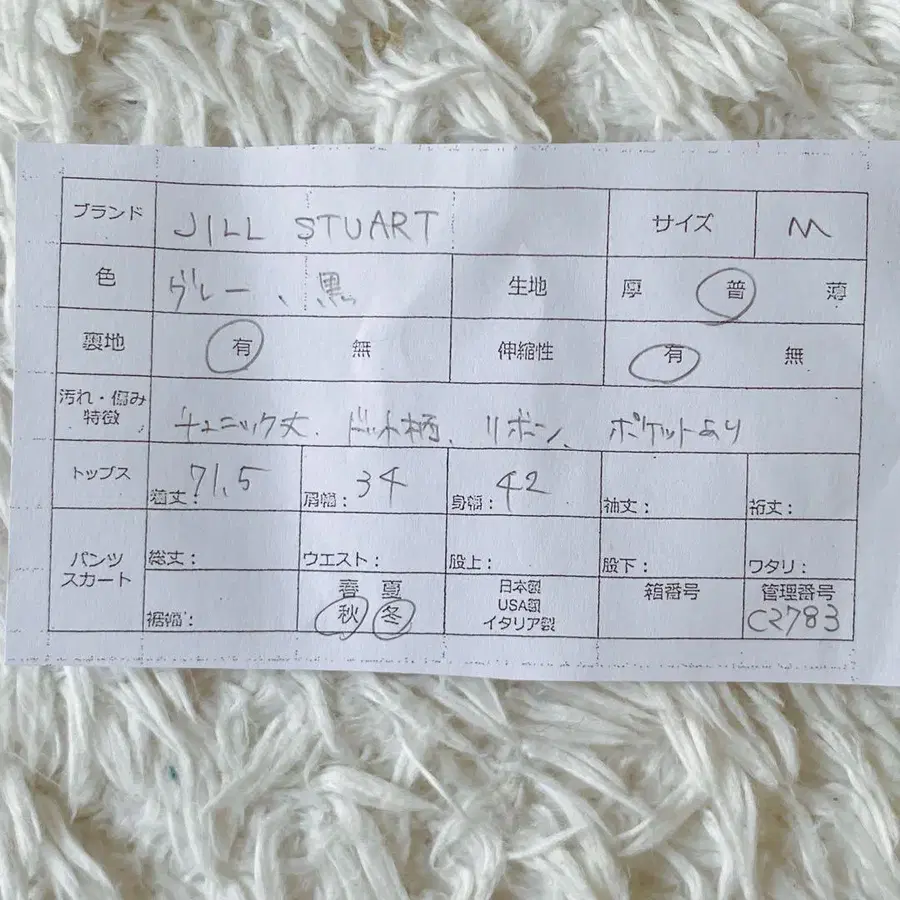 ブランド JILL STUART サイズ M
色 グレー、黒 生地 厚 普 薄
裏地 有 無 伸縮性 有 無
汚れ・傷み
特徴 チュニック丈、ドット柄、リボン、ポケットあり
トップス 着丈:71.5 肩幅:34 身幅:42 袖丈: 裄丈:
パンツ
スカート 総丈: ウエスト: 股上: 股下: ワタリ:
裾幅: 春 夏
秋 冬
日本製
USA製
イタリア製
箱番号
管理番号
C2783